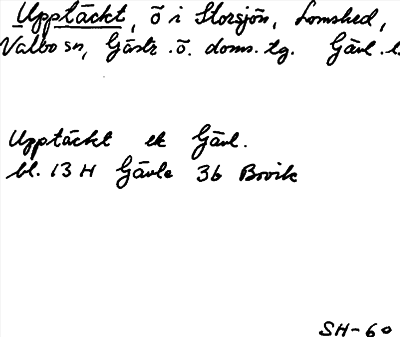 Upptäckt, ö i Storsjön, Lomshed,
Valbo sn, Gästr. ö. doms. tg. Gävl. l.
Upptäckt ek Gävl.
bl. 13 H Gävle 3b Bovik
SH-60